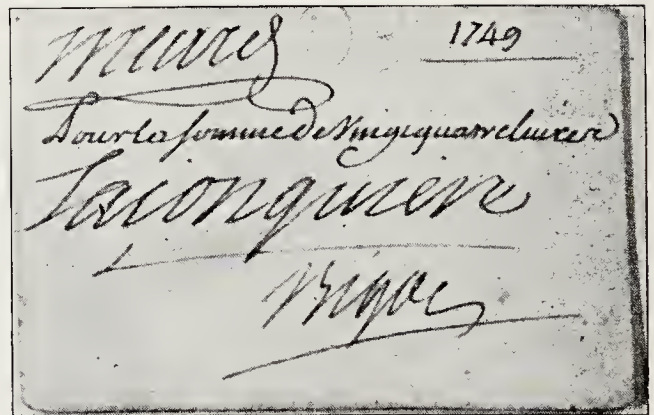 1749
Pour la somme de Vingt quatre livres
Lajonquiere
Bigot